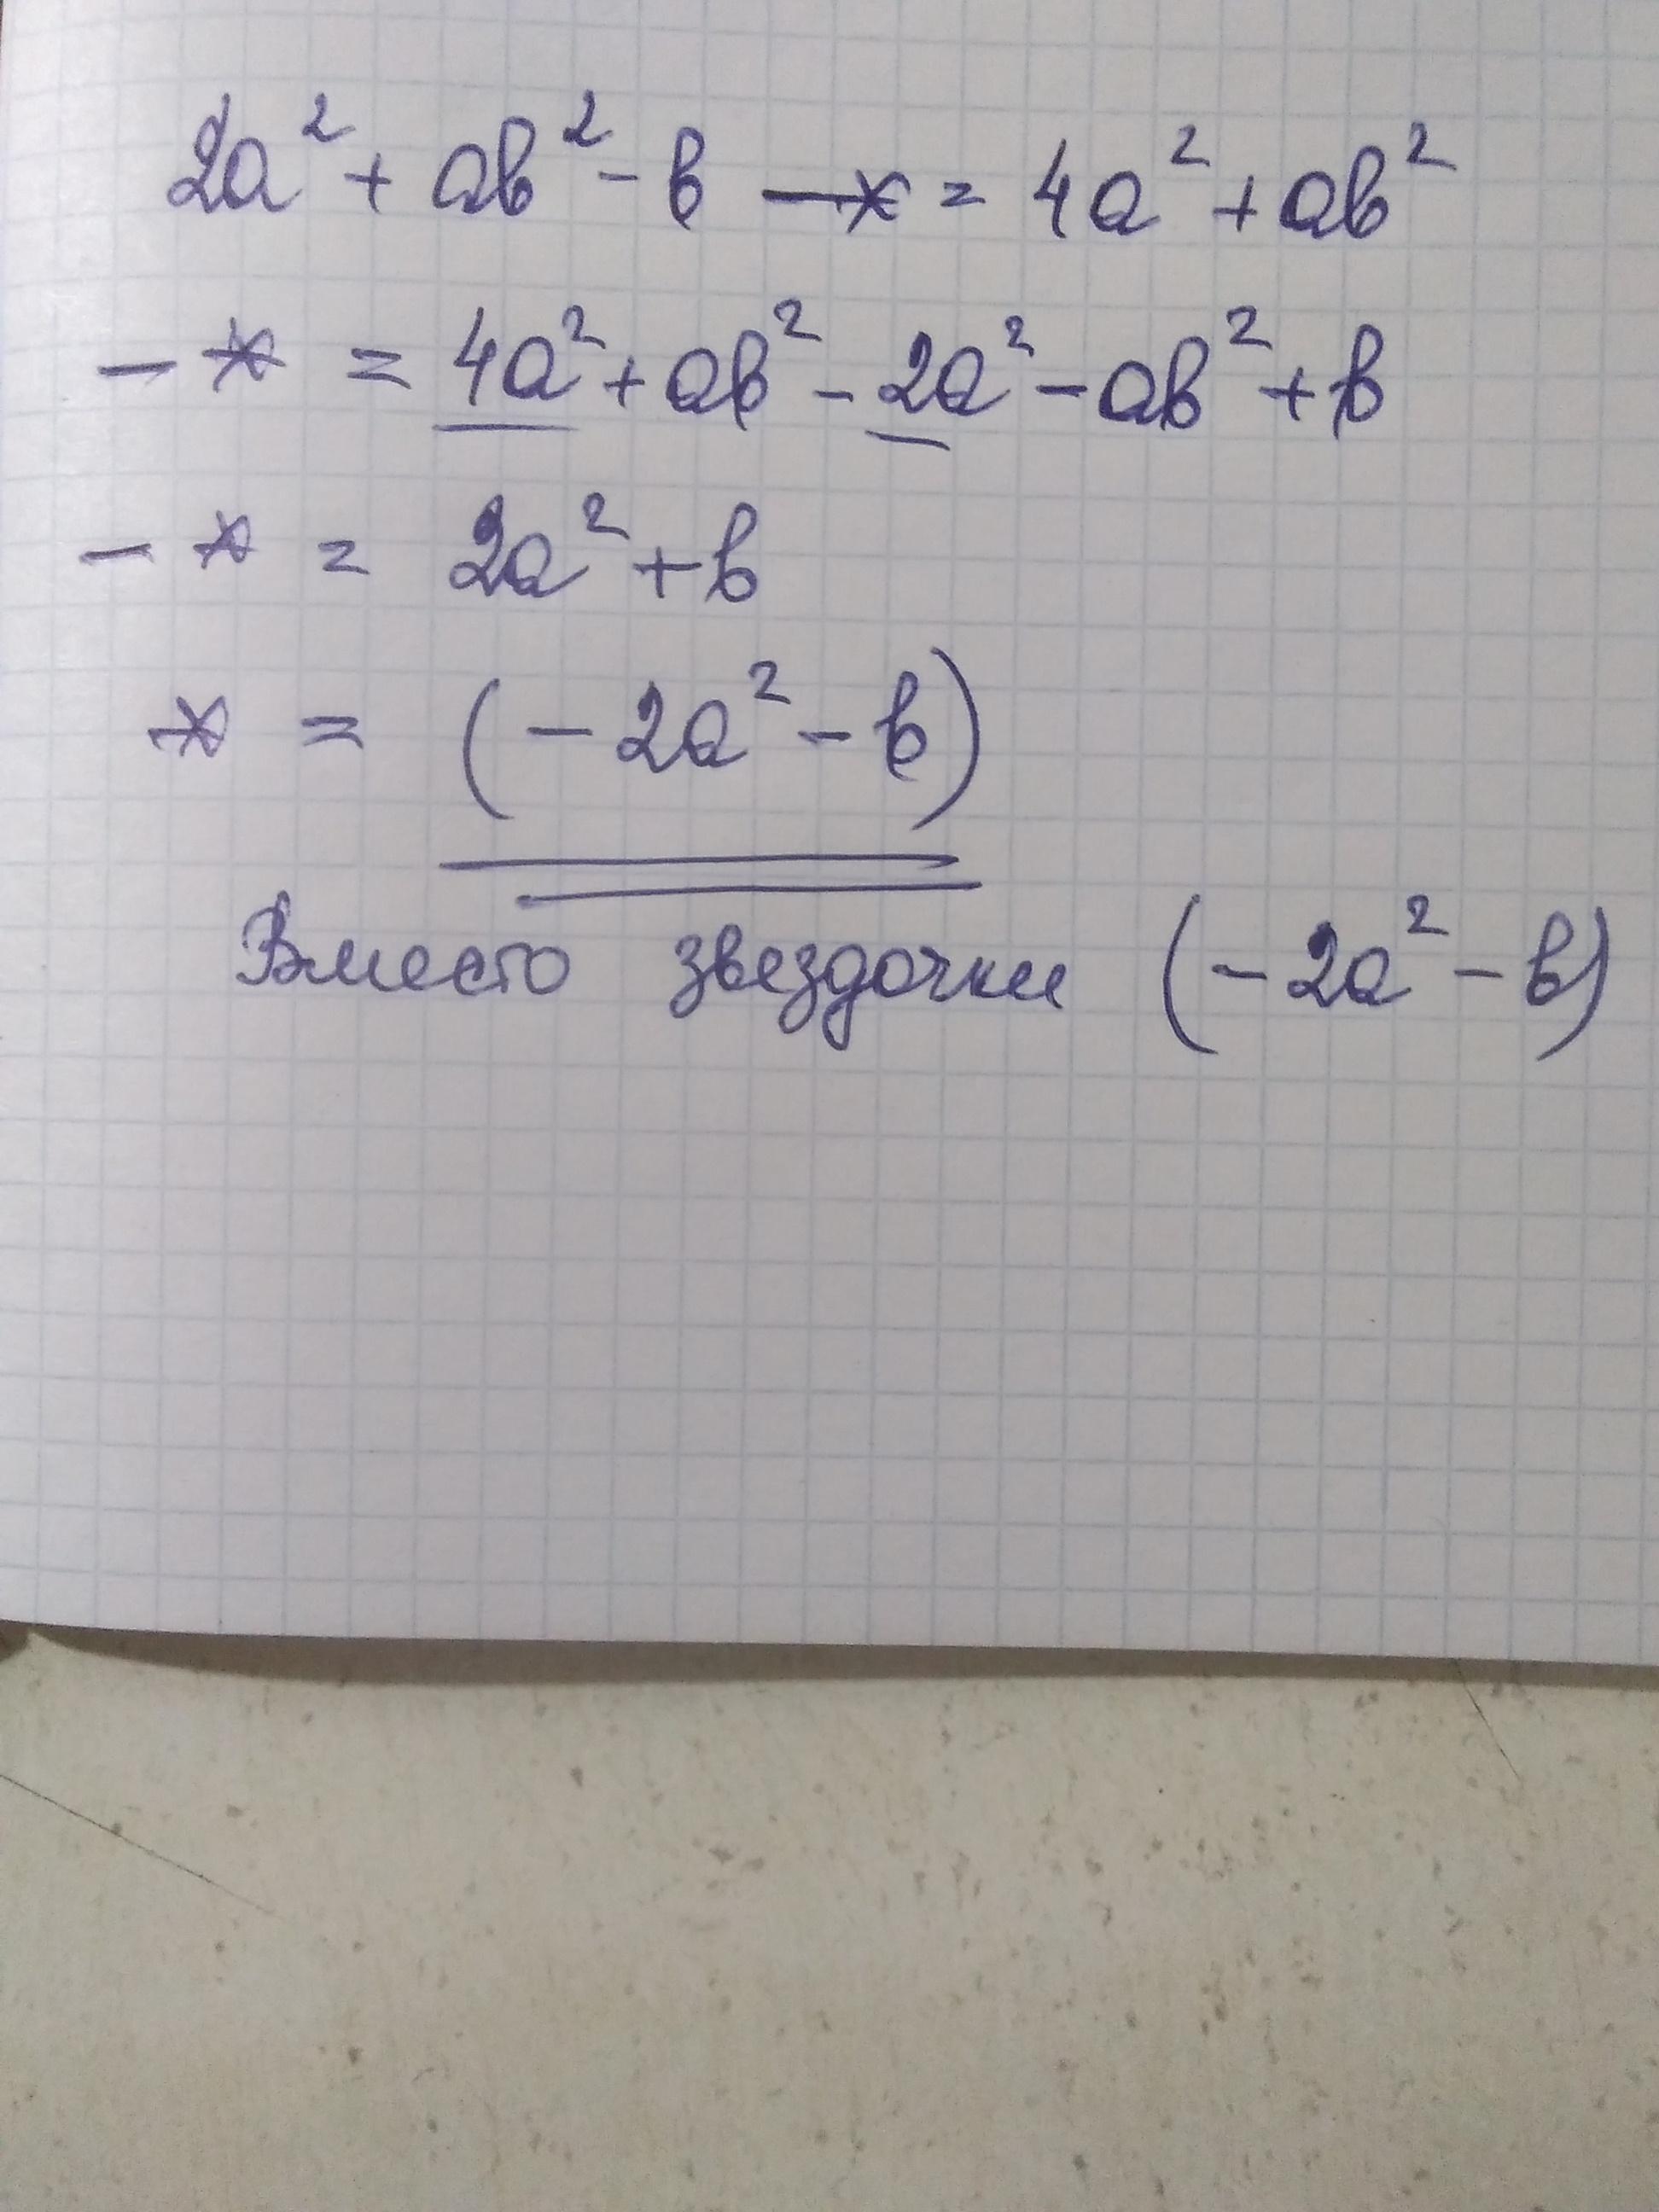 2a² + ab² - b - * = 4a² + ab²
- * = 4a² + ab² - 2a² - ab² + b
- * = 2a² + b
* = (- 2a² - b)
Вместо звездочки (- 2a² - b)